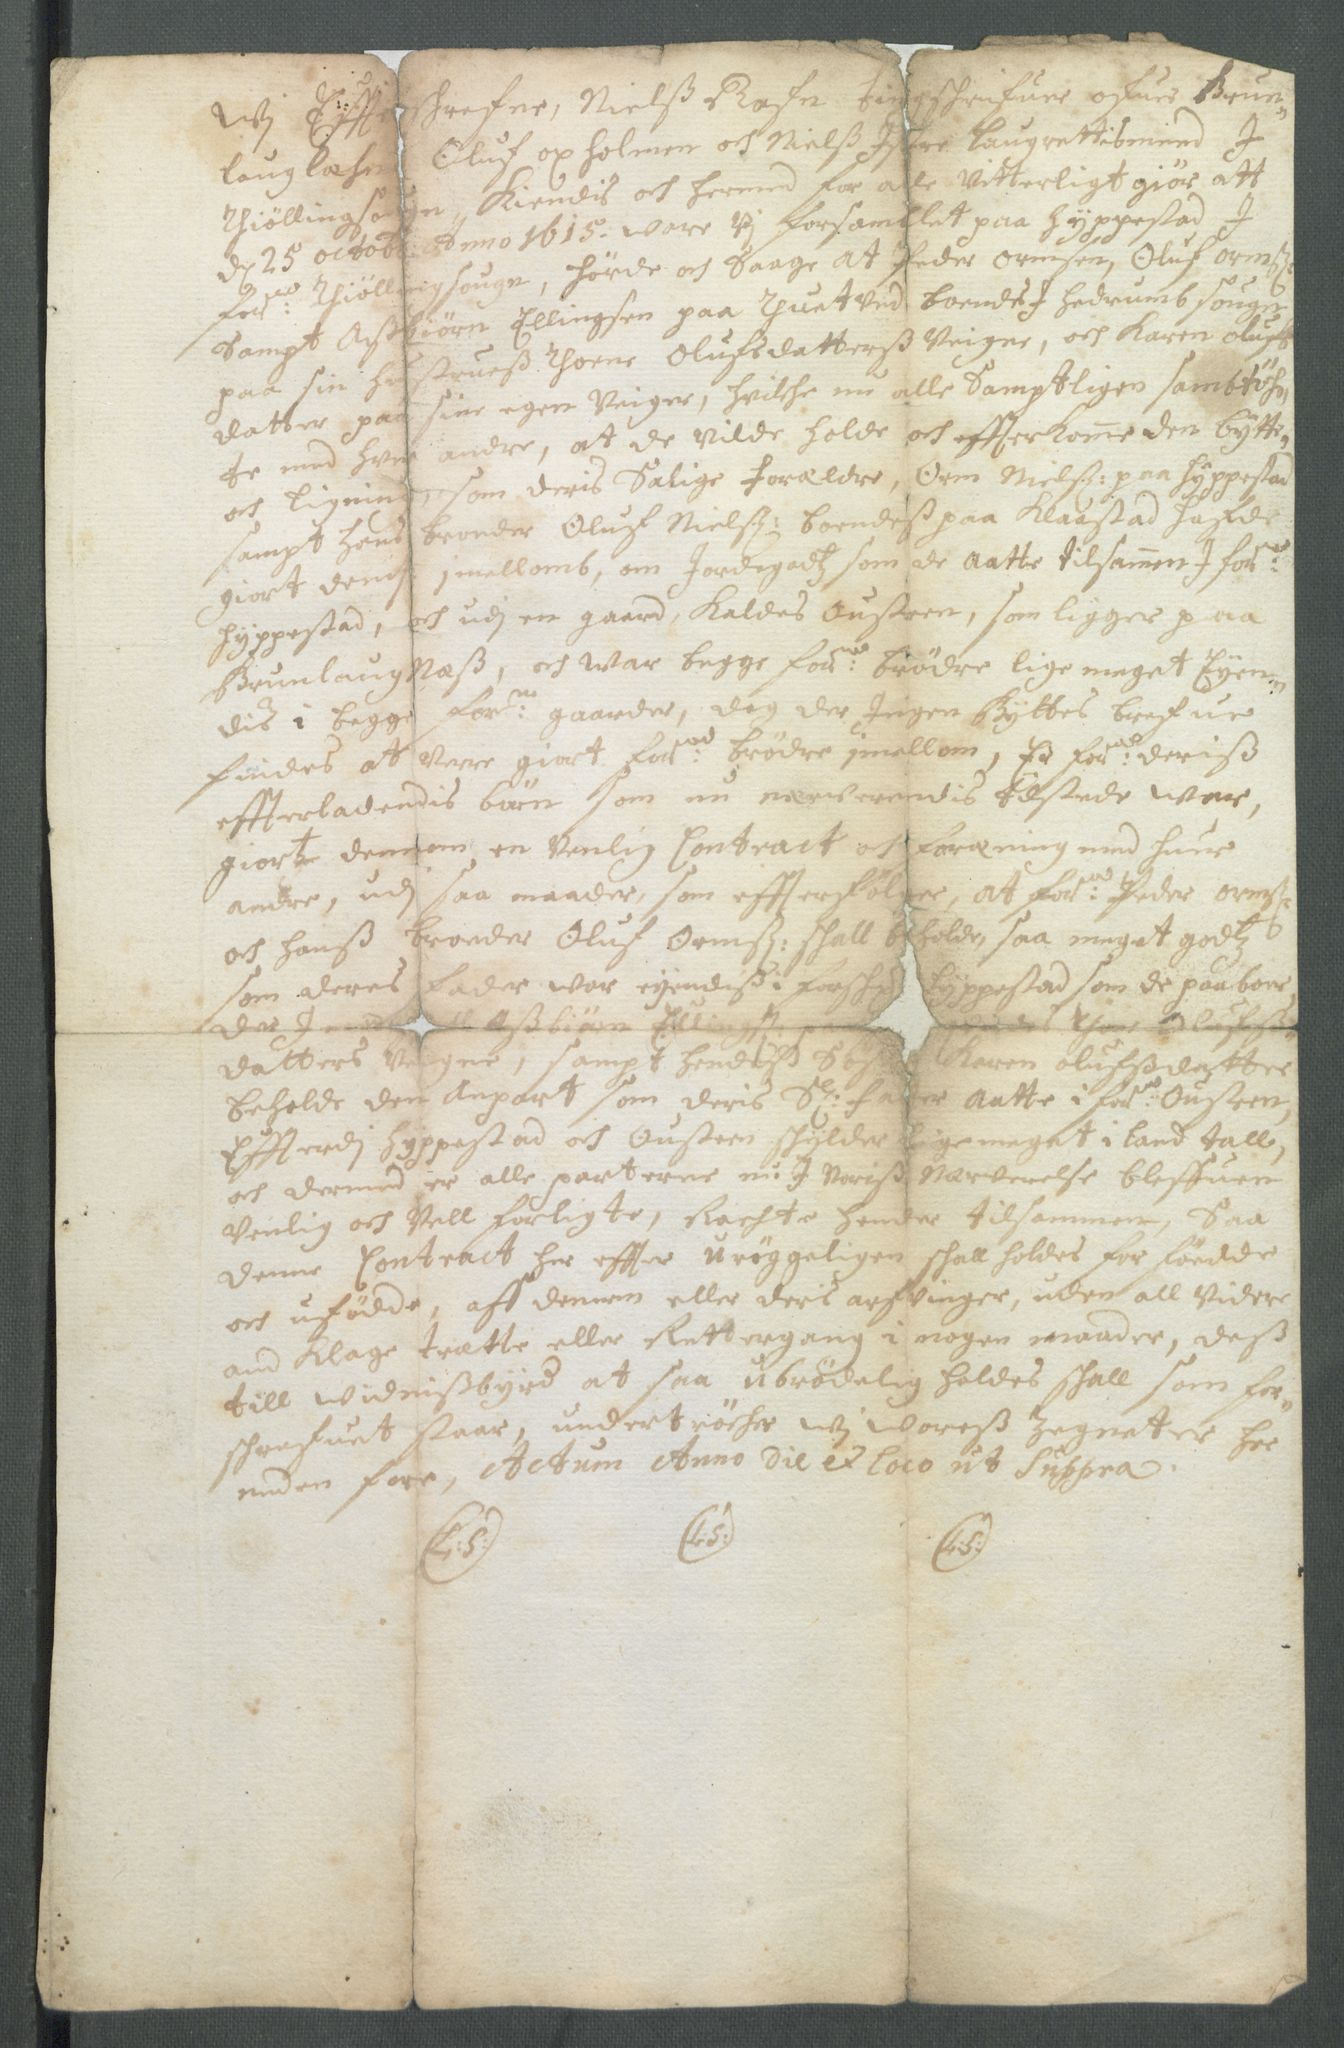 Wj Effterschrefne, Nielß Rafn tingschrifuer ofuer Brun„
laug læhn, Oluf op holmen och Nielß Istre laugrettismend J
Thiöllingsogn, Kiendis och hermed for alle Vitterligt giör att
dn 25 octob: Anno 1615. ware Vj forsamblet paa hyppestad J
forne: Thiøllingsougn, hörde och Saage at Peder Ormsen, Oluf Ormß:
Sampt Aßbiörn Ellingsen paa Thuetved boendes J hedrumb sougn
paa sin hustrueß Thorne Olufsdatterß Veigne, och Karen Olufs
datter paa sine egen Veigne, hvilche nu alle Samptligen sambtöch„
te med hver andre, at de Vilde holde och effterkomme den bytte,
och ligning, som deris Salige forældre, Orm Nielß: paa hyppestad
sampt hans broder Oluf Nielß: boendeß paa Klaastad hafde
giort denem jmellomb, om Jordegodtz som de aatte tilsammen J forne:
hyppestad, och udj en gaard, kaldes Ousteen, som ligger paa
Brunlaug Næß, och war begge forne: brödre lige meget Eyen„
dis i begge forne: gaarder, dog der Jngen Byttes brefue
findes at Vere giort forne: brödre jmellom, Er forne: deriß
effterladendis börn som nu nerverendis tilstede war,
giort dennem en Venlig Contract och foræning med huer
andre, udj saa maader, som effterfölger, at forne: Peder Ormß:
och hanß broder Oluf Ormß: schall beholde, saa meget godtz
som deres fader war eyendiß i forschr: hyppestad som de paaboer,
der Jmod schall Aßbiörn Ellingß: paa Thorne Olufs„
datters Veigne, sampt hendiß Söster Karen olufsdatter
beholde den Anpart som deris Sl: fader aatte i forne: Ousteen,
Effterdj hyppestad och Ousteen schylder lige meget i land talle,
och dermed er alle parterne nu J Voriß Nærverelse bleffuen
Venlig och Vell forligte, Rachte hender tilsammen, Saa
denne Contract her effter uröggeligen schall holdes for födde
och ufödde, aff dennem eller deris arfvinger, uden all Videre
and Klage trætte eller Rettergang i nogen maader, deß
till widnißbyrd at saa ubrödelig holdes schall som for„
schrefuet staar, undertröcher wj woreß Zegneter her
neden fore, Actum Anno Die et loco ut Suppra.
(L:S:) (L:S:) (L:S:)